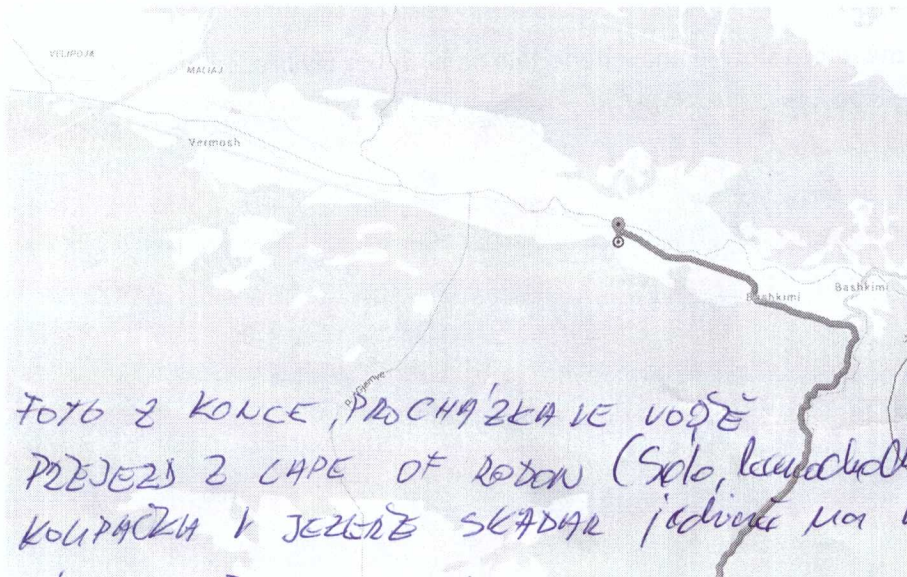 VELIPOJA
MALIAJ
Vermosh
Bashkimi
Bashkimi
FOTO Z KONCE, PROCHÁZKA VE VODĚ
PŘEJEZD Z CAPE OF RODON (Solo,
KOUPAČKA V JEZEŘE SKADAR jedině na